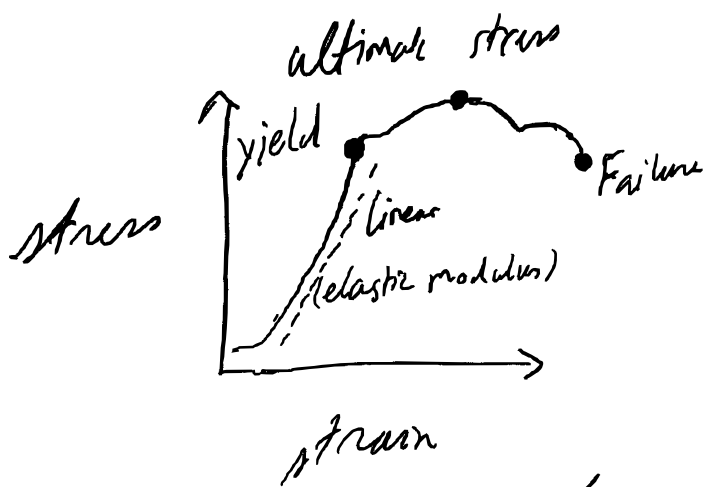 ultimate stress
yield
Failure
stress
linear
(elastic modulus)
strain